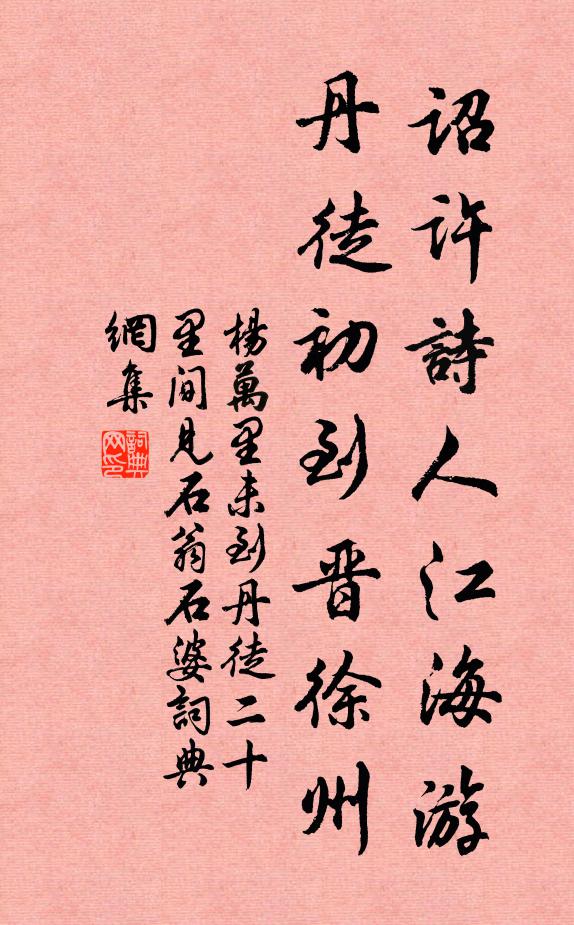 詔許詩人江海游
丹徒初到晋徐州
楊萬里未到丹徒二十
里间見石翁石婆詞典
網集
詞典网印